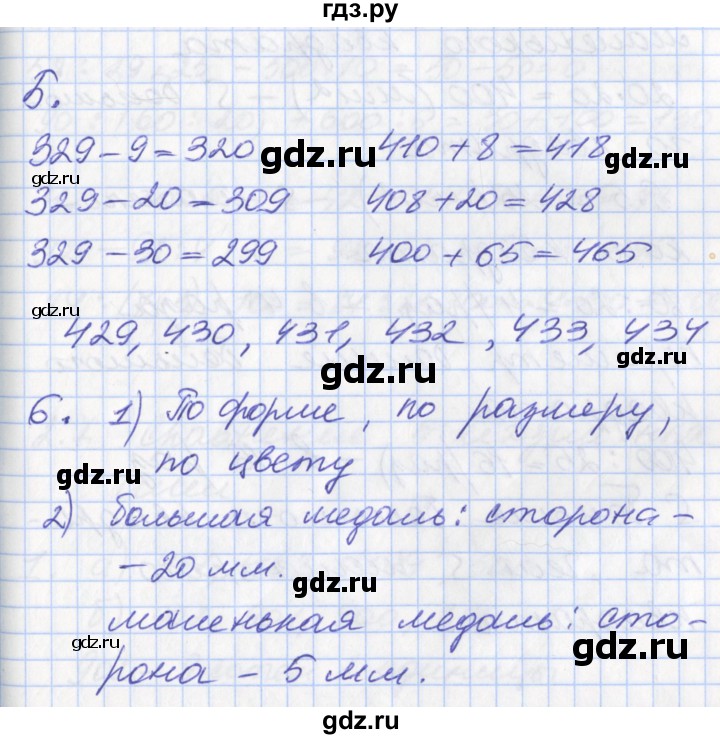 гдз.ру
Б.
329 - 9 = 320 410 + 8 = 418
329 - 20 = 309 408 + 20 = 428
329 - 30 = 299 400 + 65 = 465
429, 430, 431, 432, 433, 434
6. 1) По форме, по размеру,
по цвету
2) большая медаль: сторона -
- 20 мм.
маленькая медаль: сто-
рона - 5 мм.
gdz.ru
gdz.ru
gdz.ru
gdz.ru
gdz.ru
gdz.ru
gdz.ru
gdz.ru
gdz.ru
gdz.ru
gdz.ru
gdz.ru